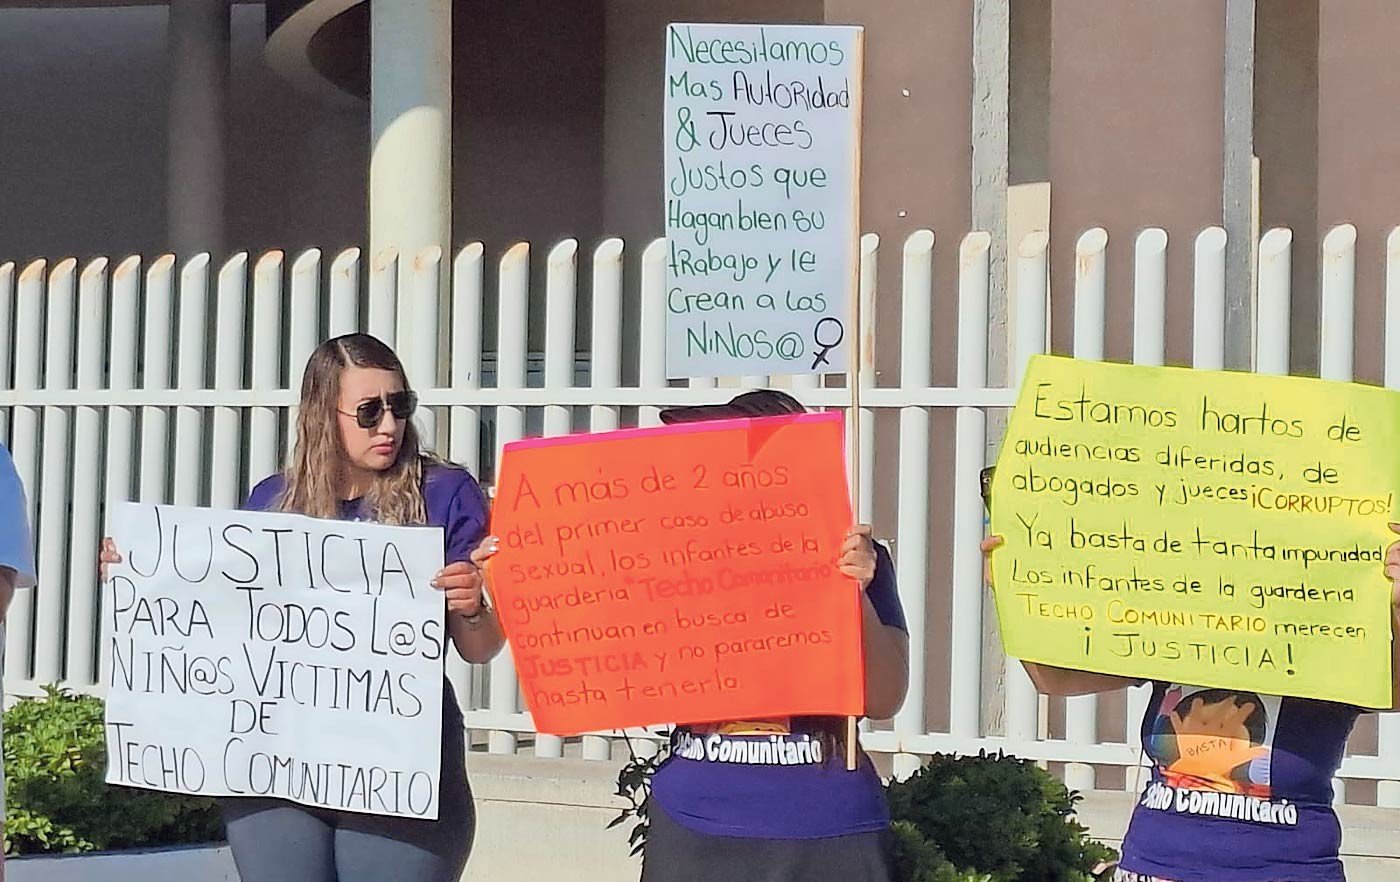 Necesitamos
Mas Autoridad
& Jueces
Justos que
Hagan bien su
trabajo y le
Crean a los
NIÑOS@
JUSTICIA
PARA TODOS L@S
NIÑ@S VICTIMAS
DE
TECHO COMUNITARIO
A más de 2 años
del primer caso de abuso
sexual, los infantes de la
guardería "Techo Comunitario"
continuan en busca de
JUSTICIA y no pararemos
hasta tenerla.
Estamos hartos de
audiencias diferidas, de
abogados y jueces ¡CORRUPTOS!
Ya basta de tanta impunidad
Los infantes de la guarderia
TECHO COMUNITARIO merecen
¡JUSTICIA!
Techo Comunitario
BASTA!
Techo Comunitario